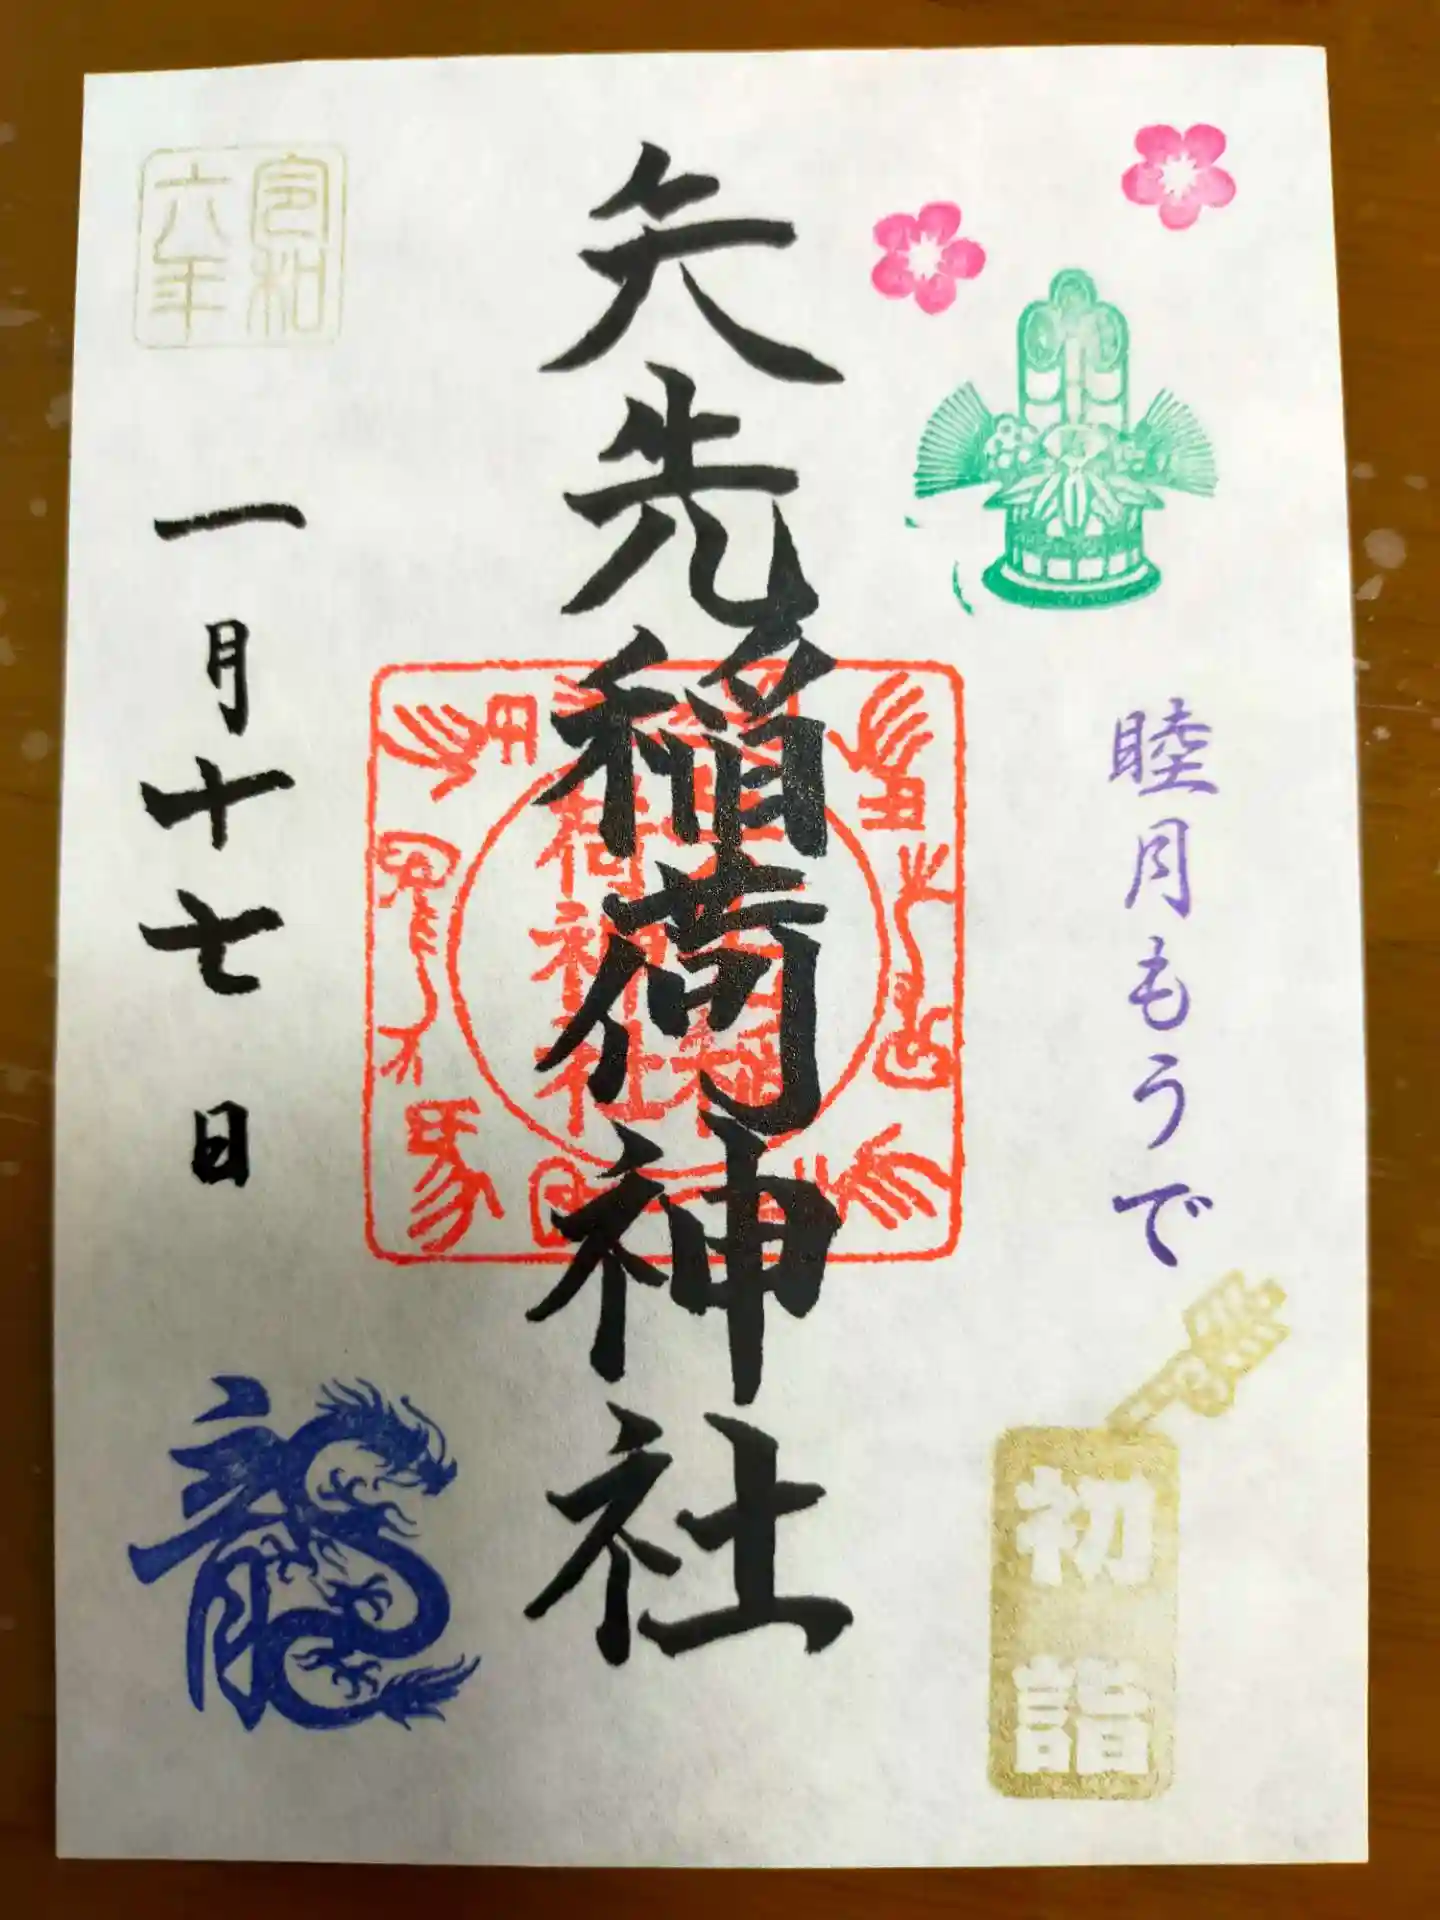 睦月もうで
初詣
矢先稲荷神社
令和
六年
一月十七日
龍